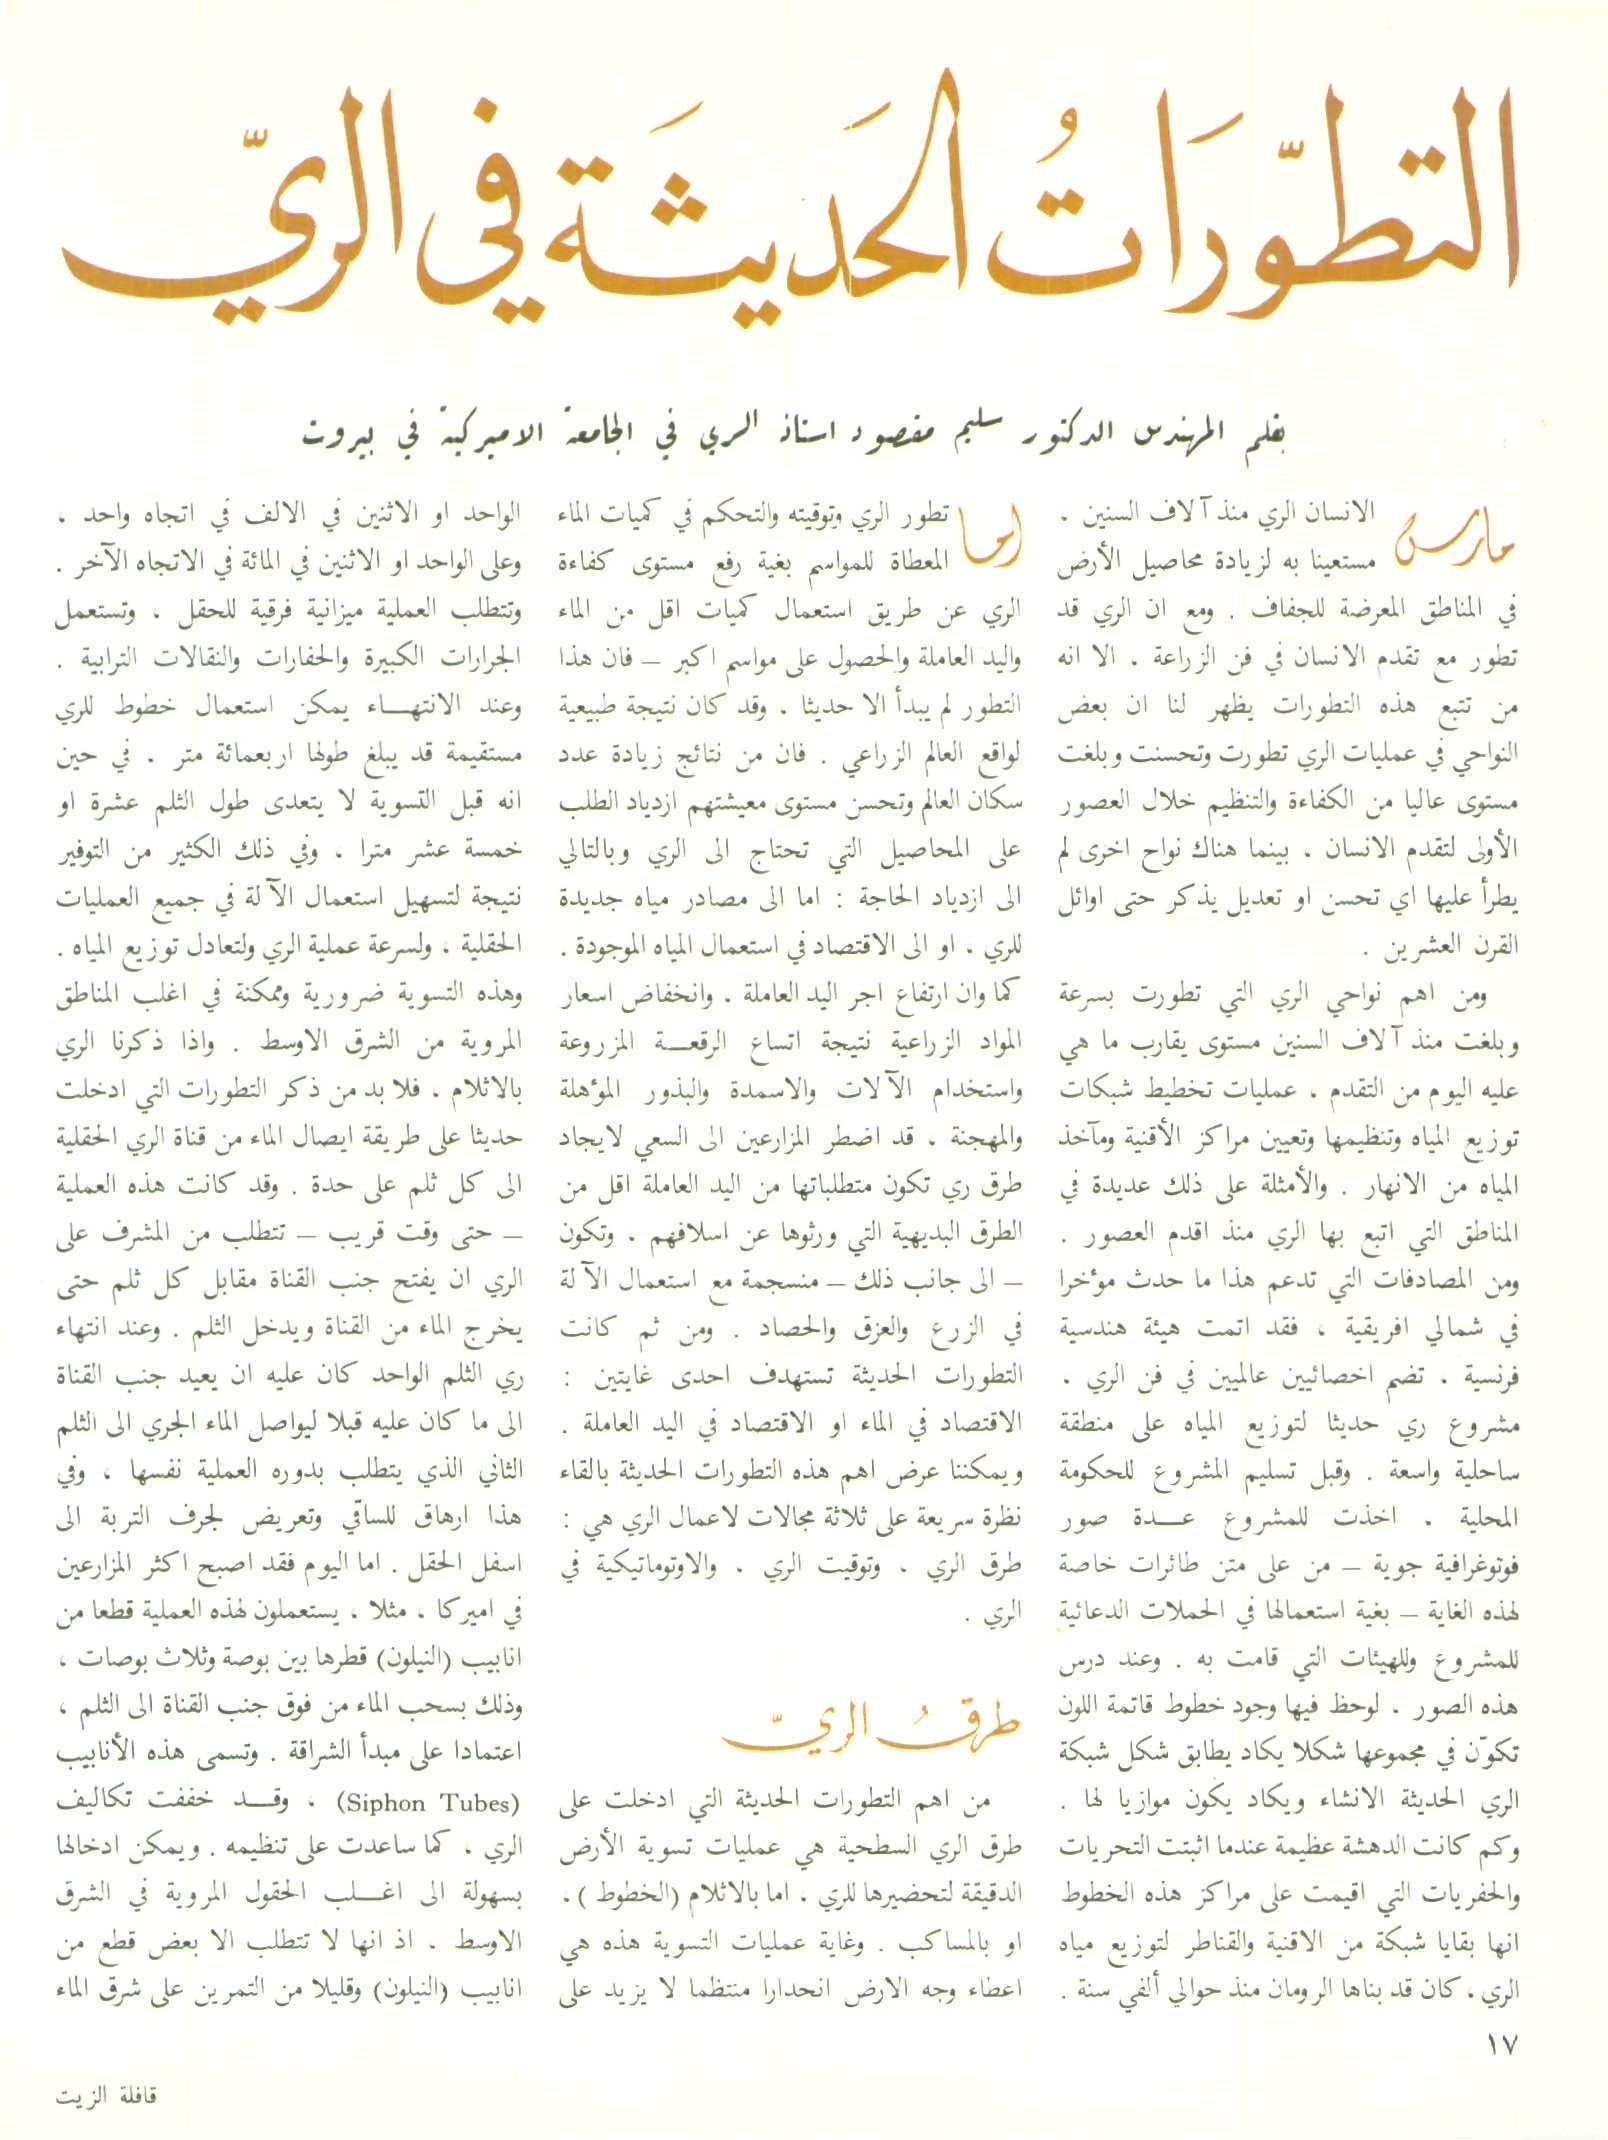 التطوّرَاتُ الحَديثَة في الريّ
بقلم المهندس الدكتور سليم مقصود استاذ الري في الجامعة الاميركية في بيروت
مارس الانسان الري منذ آلاف السنين ،
مستعينا به لزيادة محاصيل الأرض
في المناطق المعرضة للجفاف . ومع ان الري قد
تطور مع تقدم الانسان في فن الزراعة ، الا انه
من تتبع هذه التطورات يظهر لنا ان بعض
النواحي في عمليات الري تطورت وتحسنت وبلغت
مستوى عاليا من الكفاءة والتنظيم خلال العصور
الأولى لتقدم الانسان ، بينما هناك نواح اخرى لم
يطرأ عليها اي تحسن او تعديل يذكر حتى اوائل
القرن العشرين .
ومن اهم نواحي الري التي تطورت بسرعة
وبلغت منذ آلاف السنين مستوى يقارب ما هي
عليه اليوم من التقدم ، عمليات تخطيط شبكات
توزيع المياه وتنظيمها وتعيين مراكز الأقنية ومآخذ
المياه من الانهار . والأمثلة على ذلك عديدة في
المناطق التي اتبع بها الري منذ اقدم العصور .
ومن المصادفات التي تدعم هذا ما حدث مؤخرا
في شمالي افريقية ، فقد اتمت هيئة هندسية
فرنسية ، تضم اخصائيين عالميين في فن الري ،
مشروع ري حديثا لتوزيع المياه على منطقة
ساحلية واسعة . وقبل تسليم المشروع للحكومة
المحلية ، اخذت للمشروع عـــدة صور
فوتوغرافية جوية – من على متن طائرات خاصة
لهذه الغاية – بغية استعمالها في الحملات الدعائية
للمشروع وللهيئات التي قامت به . وعند درس
هذه الصور ، لوحظ فيها وجود خطوط قاتمة اللون
تكوّن في مجموعها شكلا يكاد يطابق شكل شبكة
الري الحديثة الانشاء ويكاد يكون موازيا لها .
وكم كانت الدهشة عظيمة عندما اثبتت التحريات
والحفريات التي اقيمت على مراكز هذه الخطوط
انها بقايا شبكة من الاقنية والقناطر لتوزيع مياه
الري ، كان قد بناها الرومان منذ حوالي ألفي سنة .
اما تطور الري وتوقيته والتحكم في كميات الماء
المعطاة للمواسم بغية رفع مستوى كفاءة
الري عن طريق استعمال كميات اقل من الماء
واليد العاملة والحصول على مواسم اكبر – فان هذا
التطور لم يبدأ الا حديثا ، وقد كان نتيجة طبيعية
لواقع العالم الزراعي . فان من نتائج زيادة عدد
سكان العالم وتحسن مستوى معيشتهم ازدياد الطلب
على المحاصيل التي تحتاج الى الري وبالتالي
الى ازدياد الحاجة : اما الى مصادر مياه جديدة
للري ، او الى الاقتصاد في استعمال المياه الموجودة .
كما وان ارتفاع اجر اليد العاملة ، وانخفاض اسعار
المواد الزراعية نتيجة اتساع الرقعـــة المزروعة
واستخدام الآلات والاسمدة والبذور المؤهلة
والمهجنة ، قد اضطر المزارعين الى السعي لايجاد
طرق ري تكون متطلباتها من اليد العاملة اقل من
الطرق البديهية التي ورثوها عن اسلافهم ، وتكون
– الى جانب ذلك – منسجمة مع استعمال الآلة
في الزرع والعزق والحصاد . ومن ثم كانت
التطورات الحديثة تستهدف احدى غايتين :
الاقتصاد في الماء او الاقتصاد في اليد العاملة .
ويمكننا عرض اهم هذه التطورات الحديثة بالقاء
نظرة سريعة على ثلاثة مجالات لاعمال الري هي :
طرق الري ، وتوقيت الري ، والاوتوماتيكية في
الري .
طرقُ الريّ
من اهم التطورات الحديثة التي ادخلت على
طرق الري السطحية هي عمليات تسوية الأرض
الدقيقة لتحضيرها للري ، اما بالاثلام (الخطوط ) ،
او بالمساكب . وغاية عمليات التسوية هذه هي
اعطاء وجه الارض انحدارا منتظما لا يزيد على
الواحد او الاثنين في الالف في اتجاه واحد ،
وعلى الواحد او الاثنين في المائة في الاتجاه الآخر .
وتتطلب العملية ميزانية فرقية للحقل ، وتستعمل
الجرارات الكبيرة والحفارات والنقالات الترابية .
وعند الانتهـــاء يمكن استعمال خطوط للري
مستقيمة قد يبلغ طولها اربعمائة متر . في حين
انه قبل التسوية لا يتعدى طول الثلم عشرة او
خمسة عشر مترا ، وفي ذلك الكثير من التوفير
نتيجة لتسهيل استعمال الآلة في جميع العمليات
الحقلية ، ولسرعة عملية الري ولتعادل توزيع المياه .
وهذه التسوية ضرورية وممكنة في اغلب المناطق
المروية من الشرق الاوسط . واذا ذكرنا الري
بالاثلام ، فلا بد من ذكر التطورات التي ادخلت
حديثا على طريقة ايصال الماء من قناة الري الحقلية
الى كل ثلم على حدة . وقد كانت هذه العملية
– حتى وقت قريب – تتطلب من المشرف على
الري ان يفتح جنب القناة مقابل كل ثلم حتى
يخرج الماء من القناة ويدخل الثلم . وعند انتهاء
ري الثلم الواحد كان عليه ان يعيد جنب القناة
الى ما كان عليه قبلا ليواصل الماء الجري الى الثلم
الثاني الذي يتطلب بدوره العملية نفسها ، وفي
هذا ارهاق للساقي وتعريض لجرف التربة الى
اسفل الحقل . اما اليوم فقد اصبح اكثر المزارعين
في اميركا ، مثلا ، يستعملون لهذه العملية قطعا من
انابيب (النيلون) قطرها بين بوصة وثلاث بوصات ،
وذلك بسحب الماء من فوق جنب القناة الى الثلم ،
اعتمادا على مبدأ الشراقة . وتسمى هذه الأنابيب
(Siphon Tubes) ، وقـــد خففت تكاليف
الري ، كما ساعدت على تنظيمه . ويمكن ادخالها
بسهولة الى اغـــلب الحقول المروية في الشرق
الاوسط ، اذ انها لا تتطلب الا بعض قطع من
انابيب (النيلون) وقليلا من التمرين على شرق الماء
١٧
قافلة الزيت